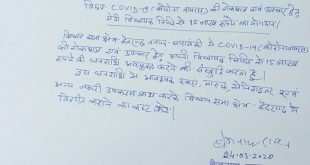 विषय: COVID-19 (कोरोना वायरस) की रोकथाम एवं उपचार हेतु
मेरी विधायक निधि से 15 लाख रुपये का योगदान।
विधान सभा क्षेत्र हैदरगढ़ जनपद-बाराबंकी में COVID-19 (कोरोना वायरस)
की रोकथाम एवं उपचार हेतु अपनी विधायक निधि से 15 लाख
रुपये की धनराशि अवमुक्त करने की संस्तुति करता हूँ।
उक्त धनराशि से आवश्यक दवाएं, मास्क, सेनिटाइजर एवं
अन्य जरूरी उपकरण क्रय करके विधान सभा क्षेत्र: हैदरगढ़ में
वितरित कराने का कष्ट करें।
24-03-2020